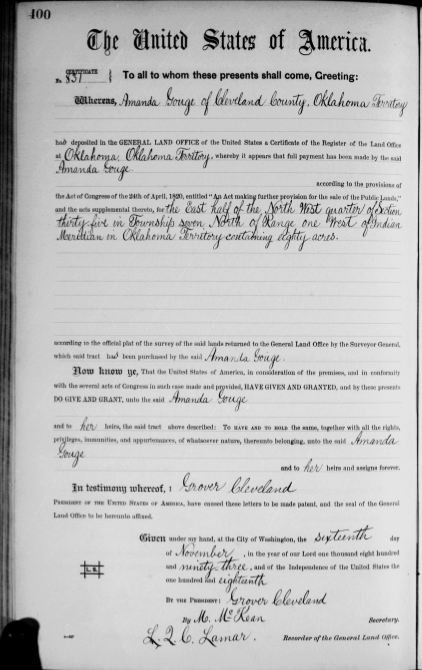 400
The United States of America.
CERTIFICATE
No. 837
To all to whom these presents shall come, Greeting:
Whereas, Amanda Gouge of Cleveland County, Oklahoma Territory
had deposited in the GENERAL LAND OFFICE of the United States a Certificate of the Register of the Land Office
at Oklahoma, Oklahoma Territory, whereby it appears that full payment has been made by the said
Amanda Gouge
according to the provisions of
the Act of Congress of the 24th of April, 1820, entitled "An Act making further provision for the sale of the Public Lands,"
and the acts supplemental thereto, for the East half of the North West quarter of Section
thirty five in Township seven North of Range one West of Indian
Meridian in Oklahoma Territory containing eighty acres.
according to the official plat of the survey of the said lands returned to the General Land Office by the Surveyor General,
which said tract had been purchased by the said Amanda Gouge.
Now know ye, That the United States of America, in consideration of the premises, and in conformity
with the several acts of Congress in such case made and provided, HAVE GIVEN AND GRANTED, and by these presents
DO GIVE AND GRANT, unto the said Amanda Gouge
and to her heirs, the said tract above described: TO HAVE AND TO HOLD the same, together with all the rights,
privileges, immunities, and appurtenances, of whatsoever nature, thereunto belonging, unto the said Amanda
Gouge
and to her heirs and assigns forever.
In testimony whereof, I Grover Cleveland
PRESIDENT OF THE UNITED STATES OF AMERICA, have caused these letters to be made patent, and the seal of the General
Land Office to be hereunto affixed.
Given under my hand, at the City of Washington, the sixteenth day
of November, in the year of our Lord one thousand eight hundred
and ninety three, and of the Independence of the United States the
one hundred and eighteenth
L. S.
BY THE PRESIDENT: Grover Cleveland
By M. McKean Secretary.
L. Q. C. Lamar. Recorder of the General Land Office.